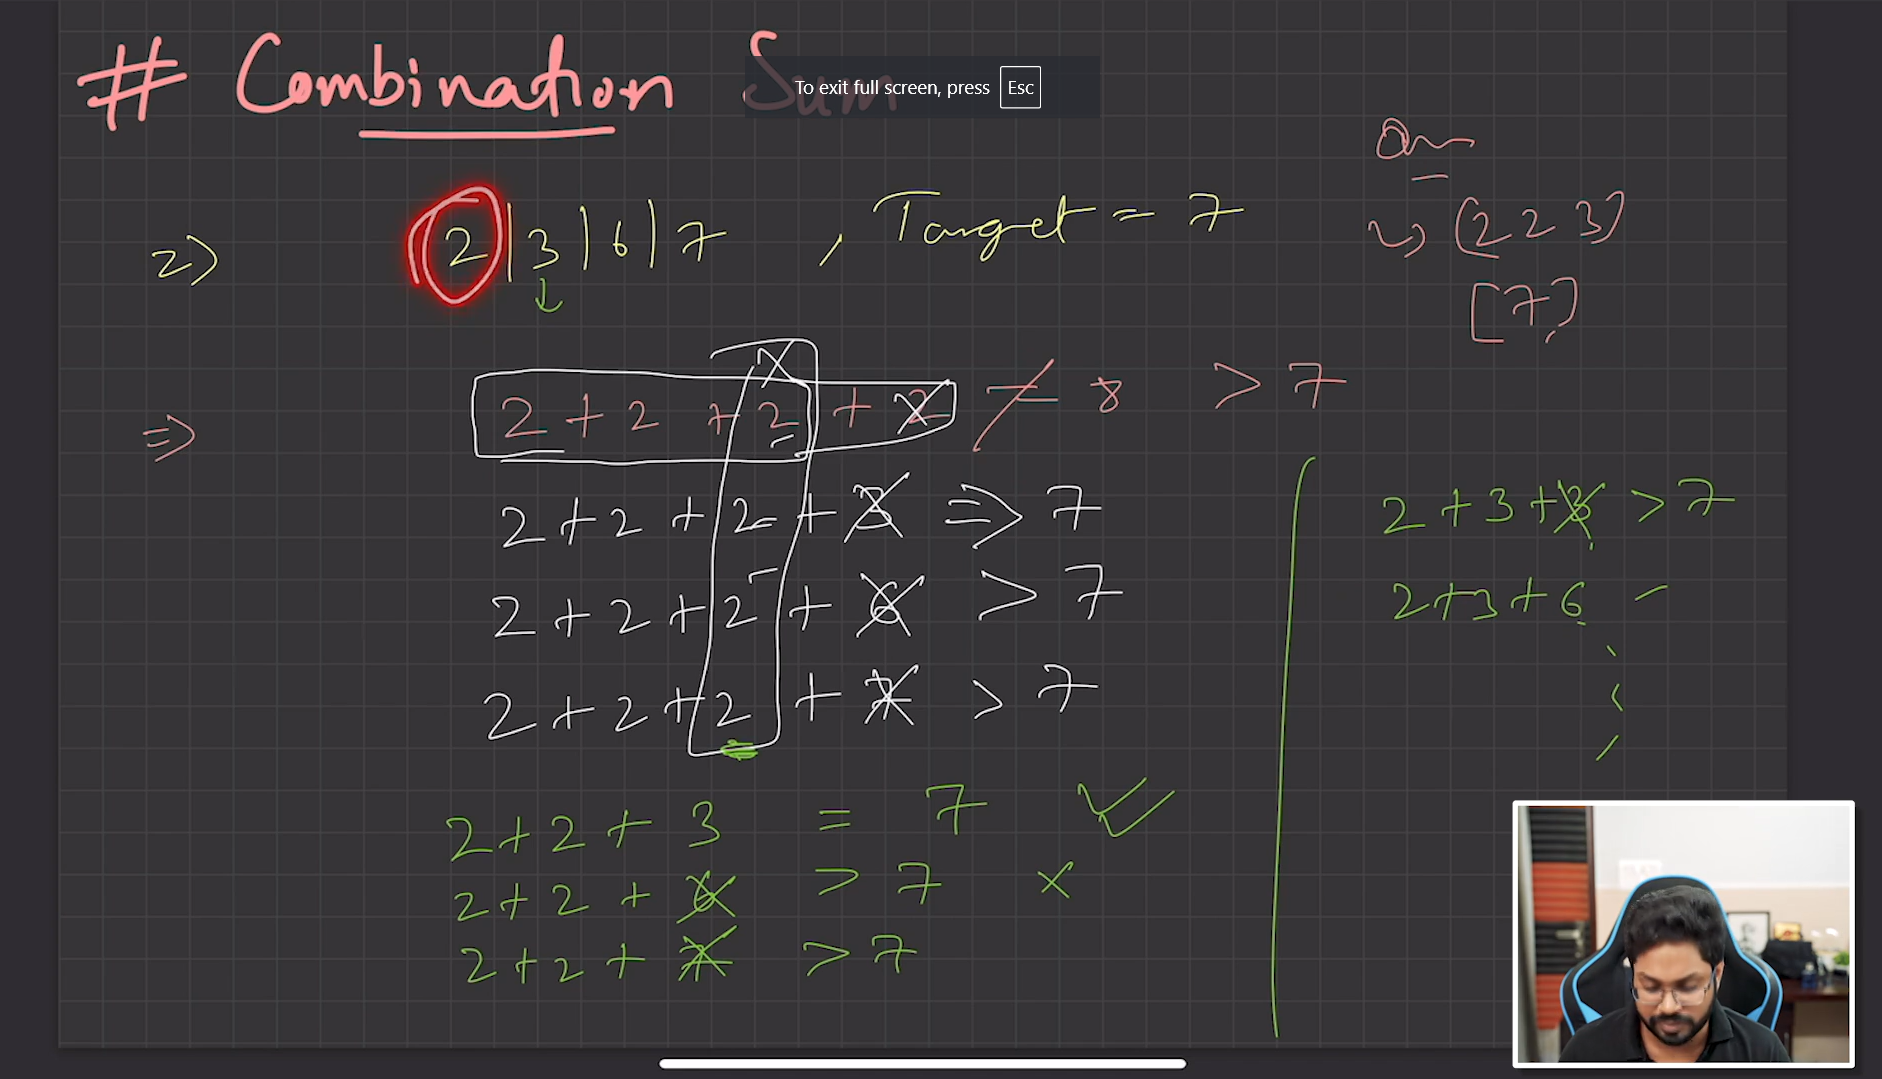 # Combination Sum
To exit full screen, press Esc
2) 2 | 3 | 6 | 7 , Target = 7
Ans
(2 2 3)
[7]
=> 2 + 2 + 2 + 2 ≠ 8 > 7
2 + 2 + 2 + 3 => 7
2 + 2 + 2 + 6 > 7
2 + 2 + 2 + 7 > 7
2 + 2 + 3 = 7 ✓
2 + 2 + 6 > 7 ×
2 + 2 + 7 > 7
2 + 3 + 3 > 7
2 + 3 + 6 -